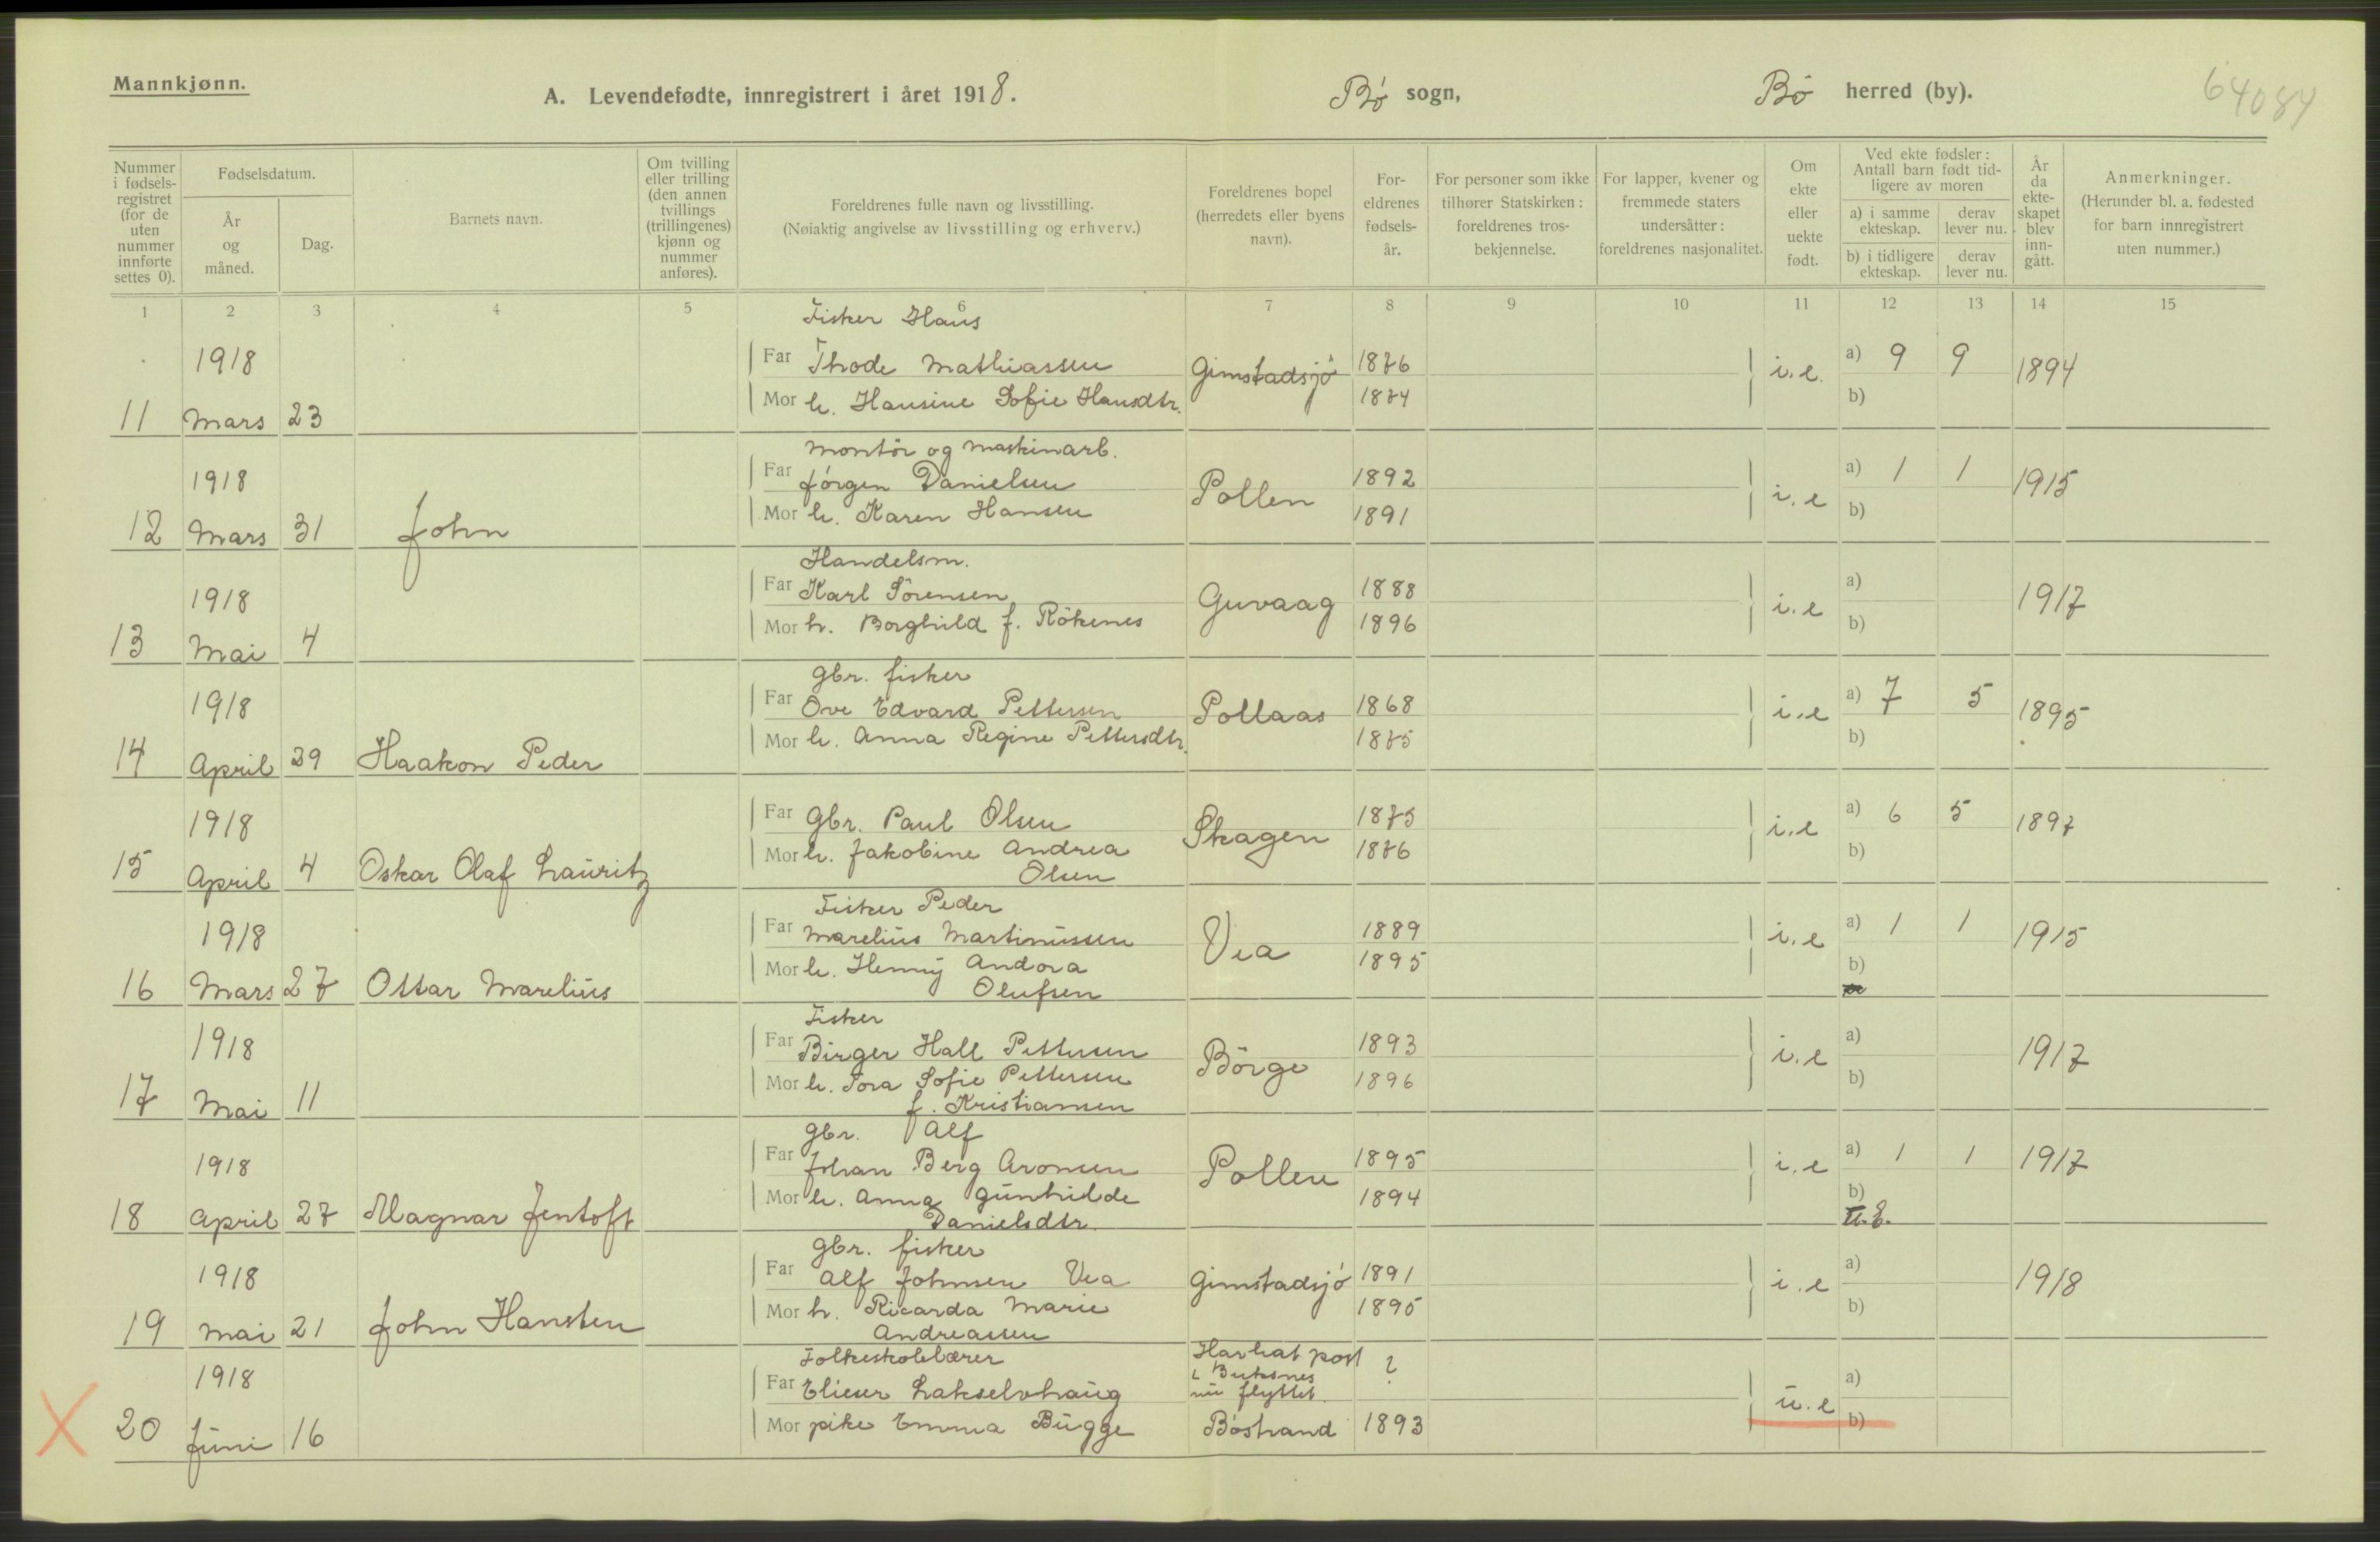 Mannkjønn.
A. Levendefødte, innregistrert i året 1918.
Bø sogn,
Bø herred (by).
64084
Nummer i fødsels-registret (for de uten nummer innførte settes 0).
Fødselsdatum.
År og måned.
Dag.
Barnets navn.
Om tvilling eller trilling (den annen tvillings (trillingenes) kjønn og nummer anføres).
Foreldrenes fulle navn og livsstilling.
(Nøiaktig angivelse av livsstilling og erhverv.)
Foreldrenes bopel (herredets eller byens navn).
For-eldrenes fødsels-år.
For personer som ikke tilhører Statskirken: foreldrenes tros-bekjennelse.
For lapper, kvener og fremmede staters undersåtter: foreldrenes nasjonalitet.
Om ekte eller uekte født.
Ved ekte fødsler: Antall barn født tid-ligere av moren
a) i samme ekteskap.
derav lever nu.
b) i tidligere ekteskap.
derav lever nu.
År da ekte-skapet blev inn-gått.
Anmerkninger.
(Herunder bl. a. fødested for barn innregistrert uten nummer.)
1 2 3 4 5 6 7 8 9 10 11 12 13 14 15
Fisker Hans
1918 Far Thode Mathiassen Gimstadsjø 1876 i.e. a) 9 9 1894
Mor h. Hansine Sofie Hansdtr. 1874 b)
11 Mars 23
Montør og maskinarb.
1918 Far Jørgen Danielsen Pollen 1892 i.e a) 1 1 1915
Mor h. Karen Hansen 1891 b)
12 Mars 31 John
Handelsm.
1918 Far Karl Sörensen Guvaag 1888 i.e a) 1917
Mor h. Borghild f. Rökenes 1896 b)
13 Mai 4
gbr. fisker
1918 Far Ove Edvard Pettersen Pollaas 1868 i.e a) 7 5 1895
Mor h. Anna Regine Pettersdtr. 1875 b)
14 April 29 Haakon Peder
1918 Far Gbr. Paul Olsen Skagen 1875 i.e a) 6 5 1897
Mor h. Jakobine Andrea 1876 b)
15 April 4 Oskar Olaf Lauritz Olsen
Fisker Peder
1918 Far Marelius Martinussen Vea 1889 i.e a) 1 1 1915
Mor h. Henny Andora 1895 b)
16 Mars 27 Ottar Marelius Olufsen
Fisker
1918 Far Birger Hall Pettersen Börge 1893 i.e a) 1917
Mor h. Tora Sofie Pettersen 1896 b)
17 Mai 11 f. Kristiansen
gbr. Alf
1918 Far Johan Berg Aronsen Pollen 1895 i.e a) 1 1 1917
Mor h. Anna Gunhilde 1894 b)
18 April 27 Magnar Jentoft Danielsdtr. u.E.
gbr. fisker
1918 Far Alf Johnsen Vea Gimstadsjø 1891 i.e a) 1918
Mor h. Ricarda Marie 1895 b)
19 Mai 21 John Hansten Andreassen
Folkeskolelærer Har hat post ?
1918 i Buksnes a)
Far Elieser Lakselvhaug nu flyttet. u.e
20 Juni 16 Mor pike Emma Bugge Bøstrand 1893 b)